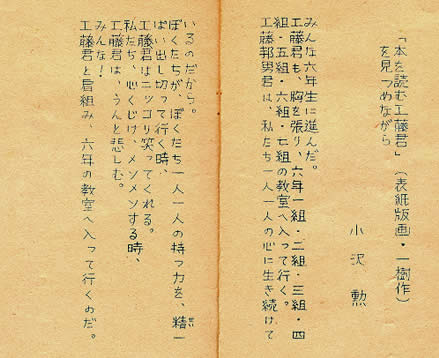 「本を読む工藤君」（表紙版画・一樹作）
を見つめながら
小沢 勲
みんな六年生に進んだ。
工藤君も、胸を張り、六年一組・二組・三組・四
組・五組・六組・七組の教室へ入って行く。
工藤邦男君は、私たち一人一人の心に生き続けて
いるのだから。
ぼくたちが、ぼくたち一人一人の持つ力を、精一
ぱい出し切って行く時、
工藤君はニッコリ笑ってくれる。
私たち、心くじけ、メソメソする時、
工藤君は、うんと悲しむ。
みんな！
工藤君と肩組み、六年の教室へ入って行くのだ。